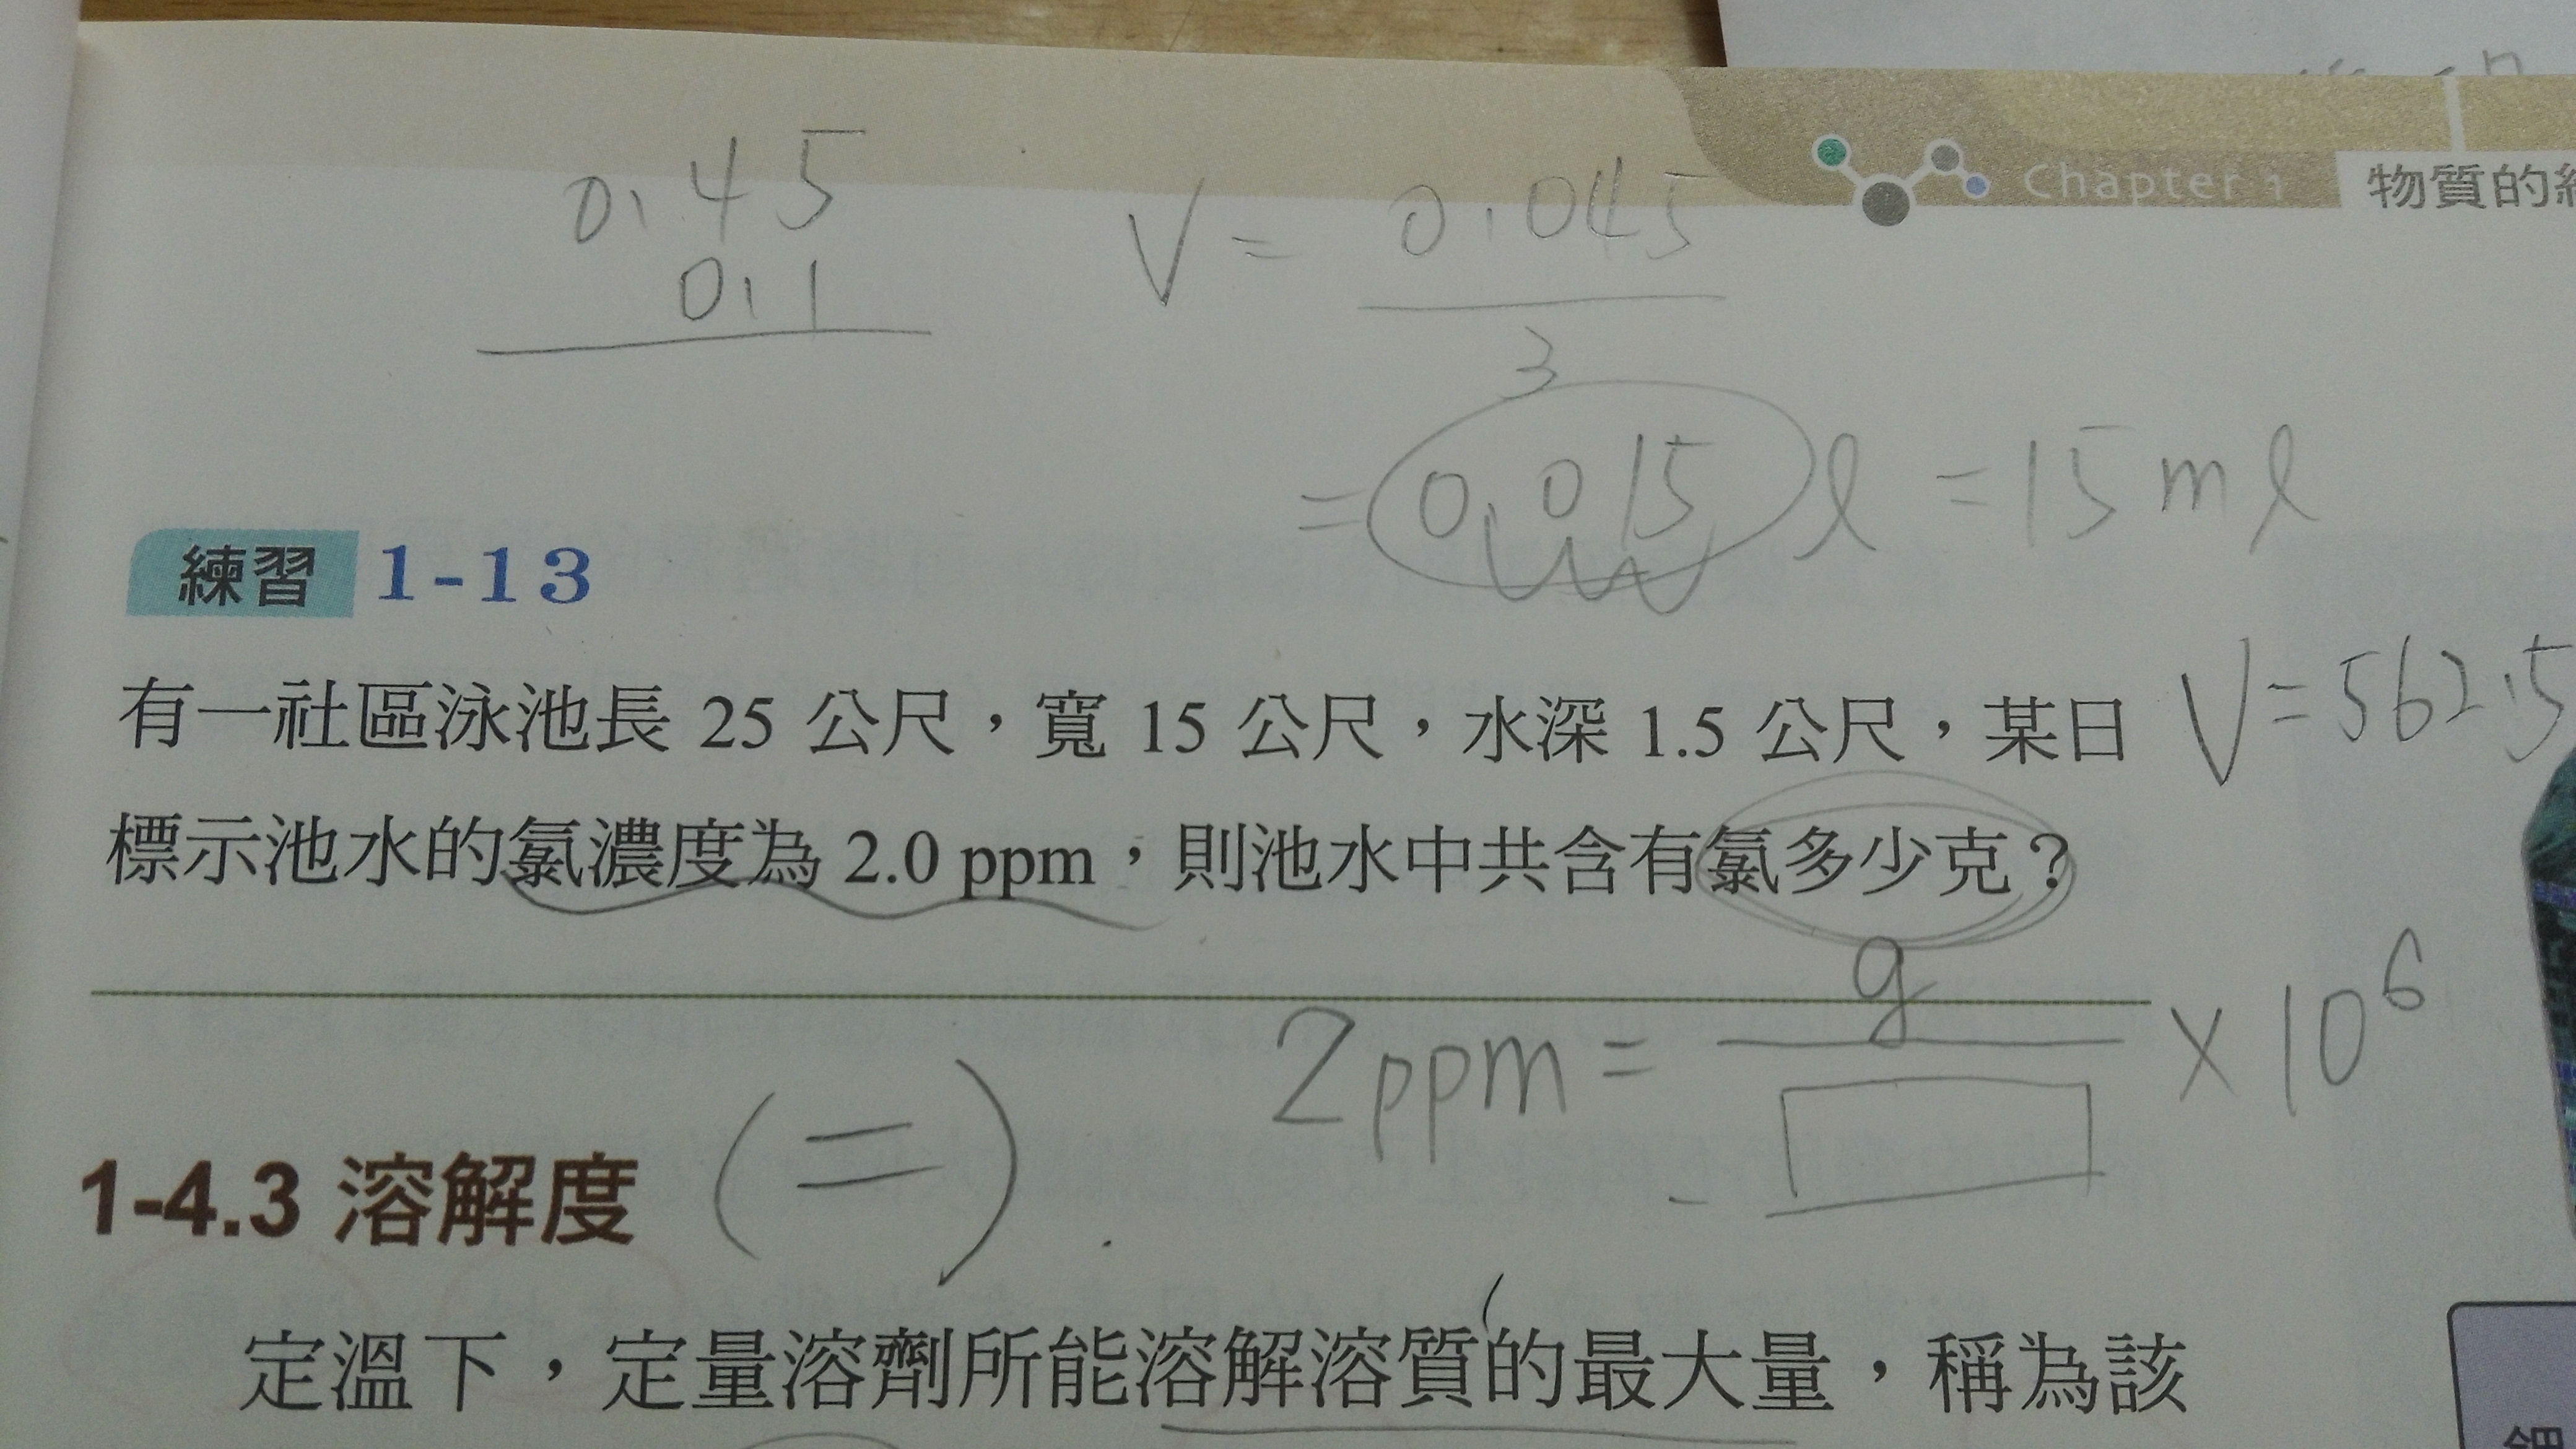 Chapter 1 物質的
0.45
0.1
V = 0.045
3
= 0.015 l = 15 ml
練習 1-13
有一社區泳池長 25 公尺，寬 15 公尺，水深 1.5 公尺，某日
V = 562.5
標示池水的氯濃度為 2.0 ppm，則池水中共含有氯多少克？
2 ppm = g × 10⁶
1-4.3 溶解度 (=)
定溫下，定量溶劑所能溶解溶質的最大量，稱為該